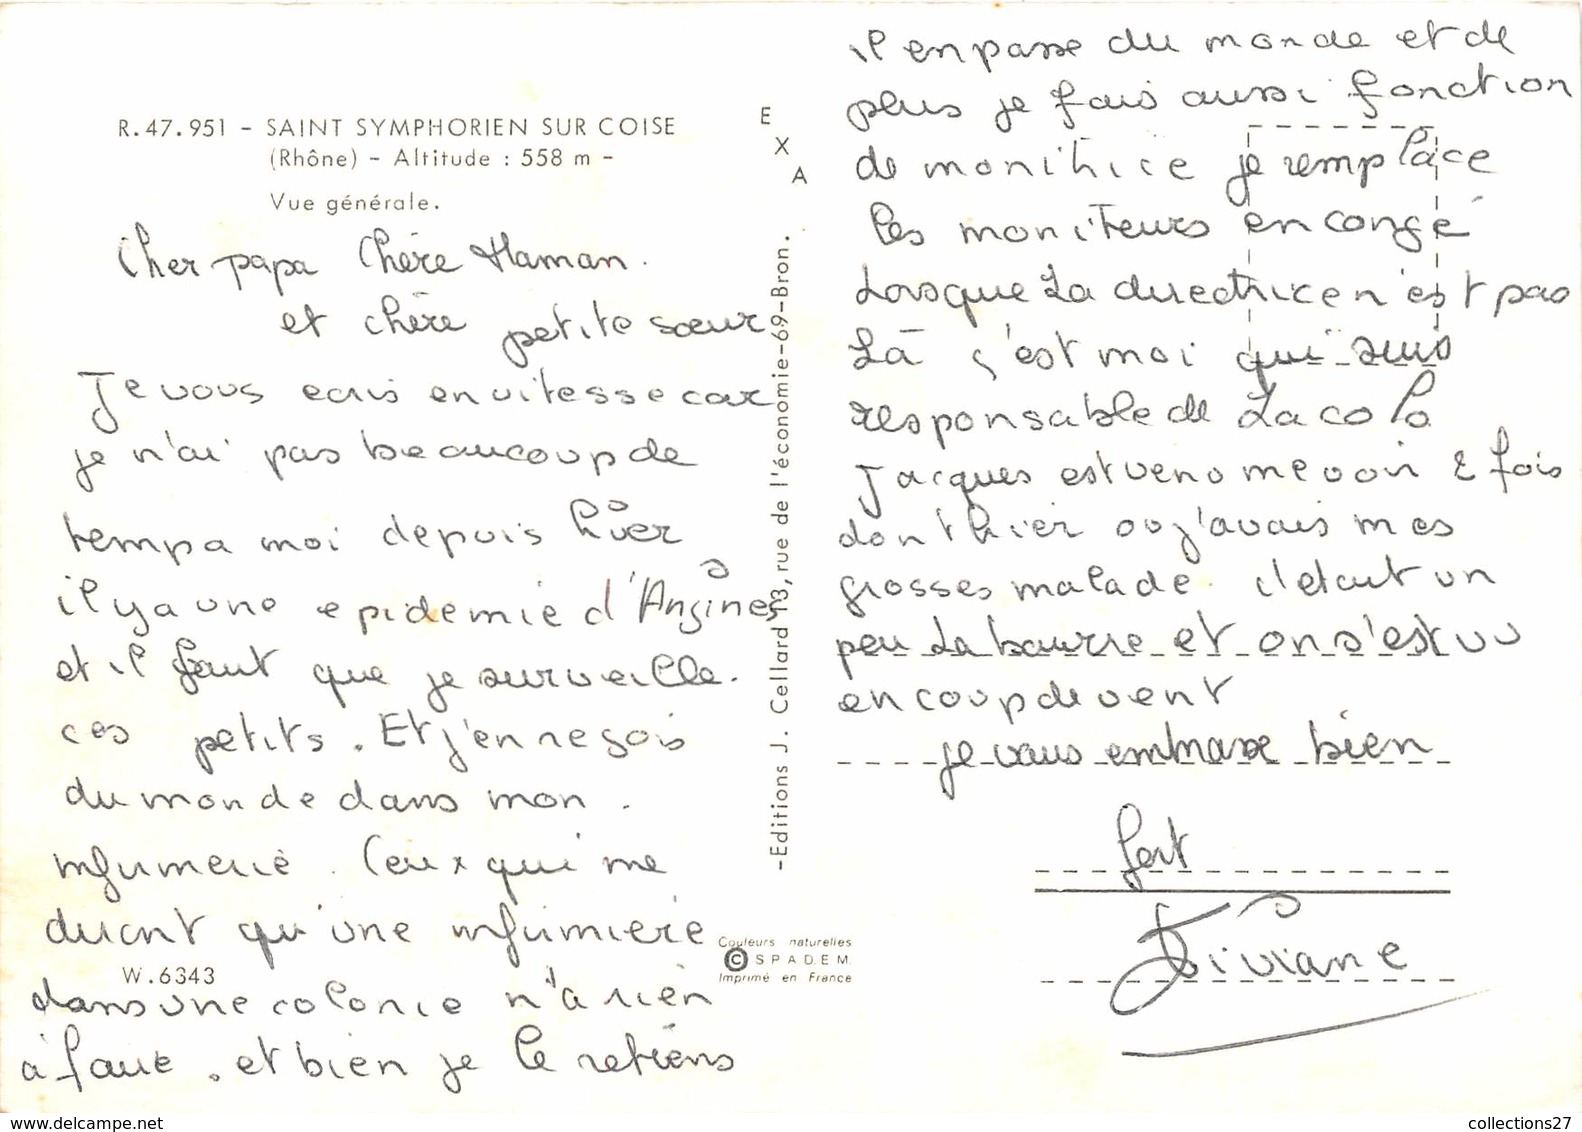 R.47.951 - SAINT SYMPHORIEN SUR COISE
(Rhône) - Altitude : 558 m -
Vue générale.
Cher papa Chère Maman.
et chère petite sœur
Je vous ecris en vitesse car
je n'ai pas beaucoup de
temps a moi depuis hier
il y a une epidemie d'Angines
et il faut que je surveille.
ces petits. Et j'en reçois
du monde dans mon.
infirmerie. Ceux qui me
diront qu'une infirmiere
W.6343
dans une colonie n'a rien
à faire. et bien je le retiens
E
X
A
-Editions J. Cellard 13, rue de l'économie-69-Bron.
Couleurs naturelles
© SPADEM
Imprimé en France
il en passe du monde et de
plus je fais aussi fonction
de monitrice je remplace
les moniteurs en congé
Lorsque La directrice n'est pas
Là ç'est moi qui suis
responsable de La colo
Jacques est venu me voir 2 fois
dont hier ou j'avais mes
grosses malade. c'etait un
peu La bourre et on s'est vu
en coup de vent
je vous embrasse bien
fort
Viviane
collections27